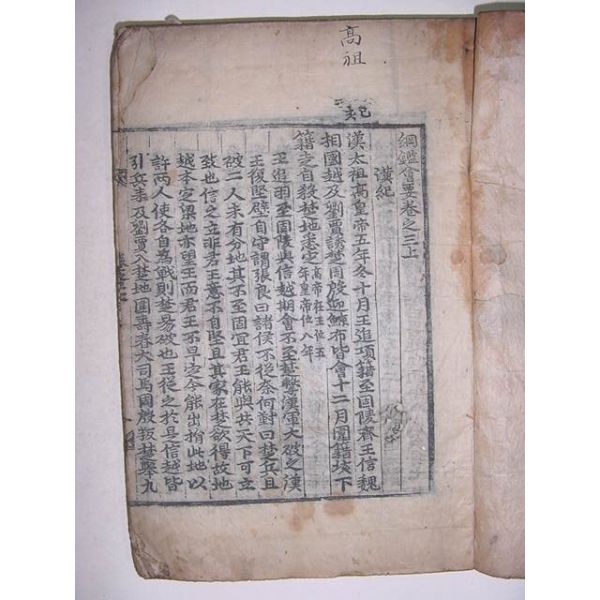 高祖
己亥
綱鑑會要卷之三上
漢紀
漢太祖高皇帝五年冬十月王追項籍至固陵齊王信魏
相國越及劉賈誘楚周殷迎鯨布皆會十二月圍籍垓下
籍走自殺楚地悉定高帝在王位五年皇帝位八年
王追羽至固陵與信越期會不至楚擊漢軍大破之漢
王復堅壁自守謂張良曰諸侯不從奈何對曰楚兵且
破二人未有分地其不至固宜君王能與共天下可立
致也信之立非君王意不自堅且其家在楚欲得故地
越本定梁地亦望王而君王不早定今能出捐此地以
許兩人使各自為戰則楚易破也王從之於是信越皆
引兵來及劉賈入楚地圍壽春大司馬周殷叛楚舉九